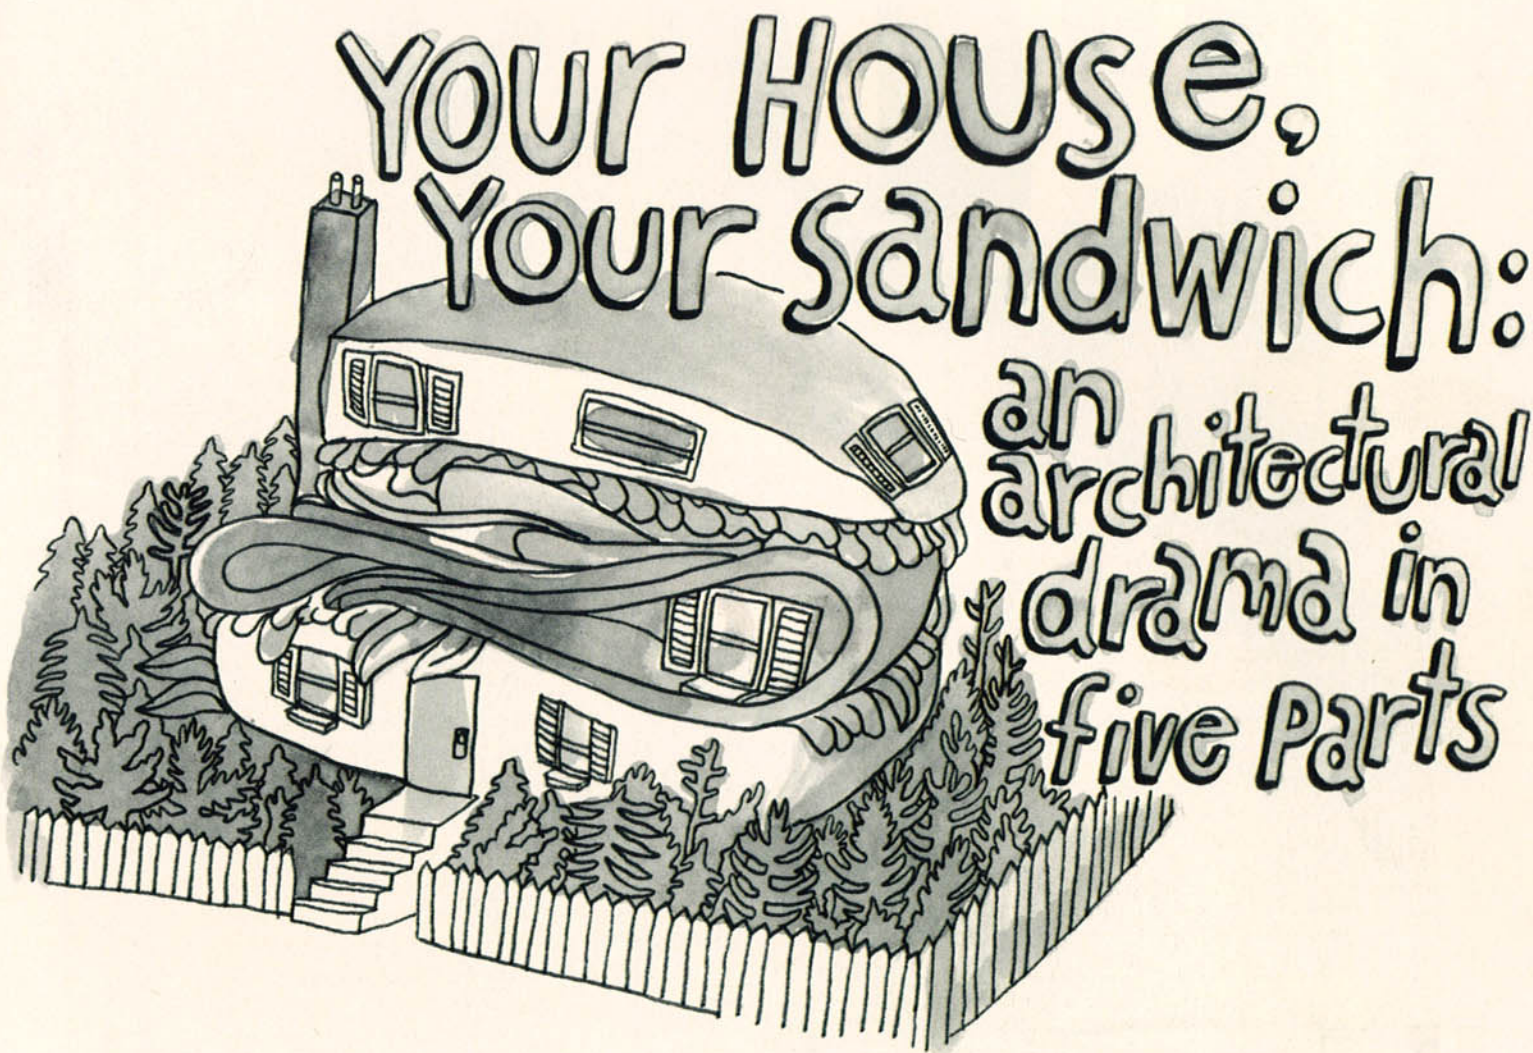 Your House,
Your Sandwich:
an
architectural
drama in
five parts